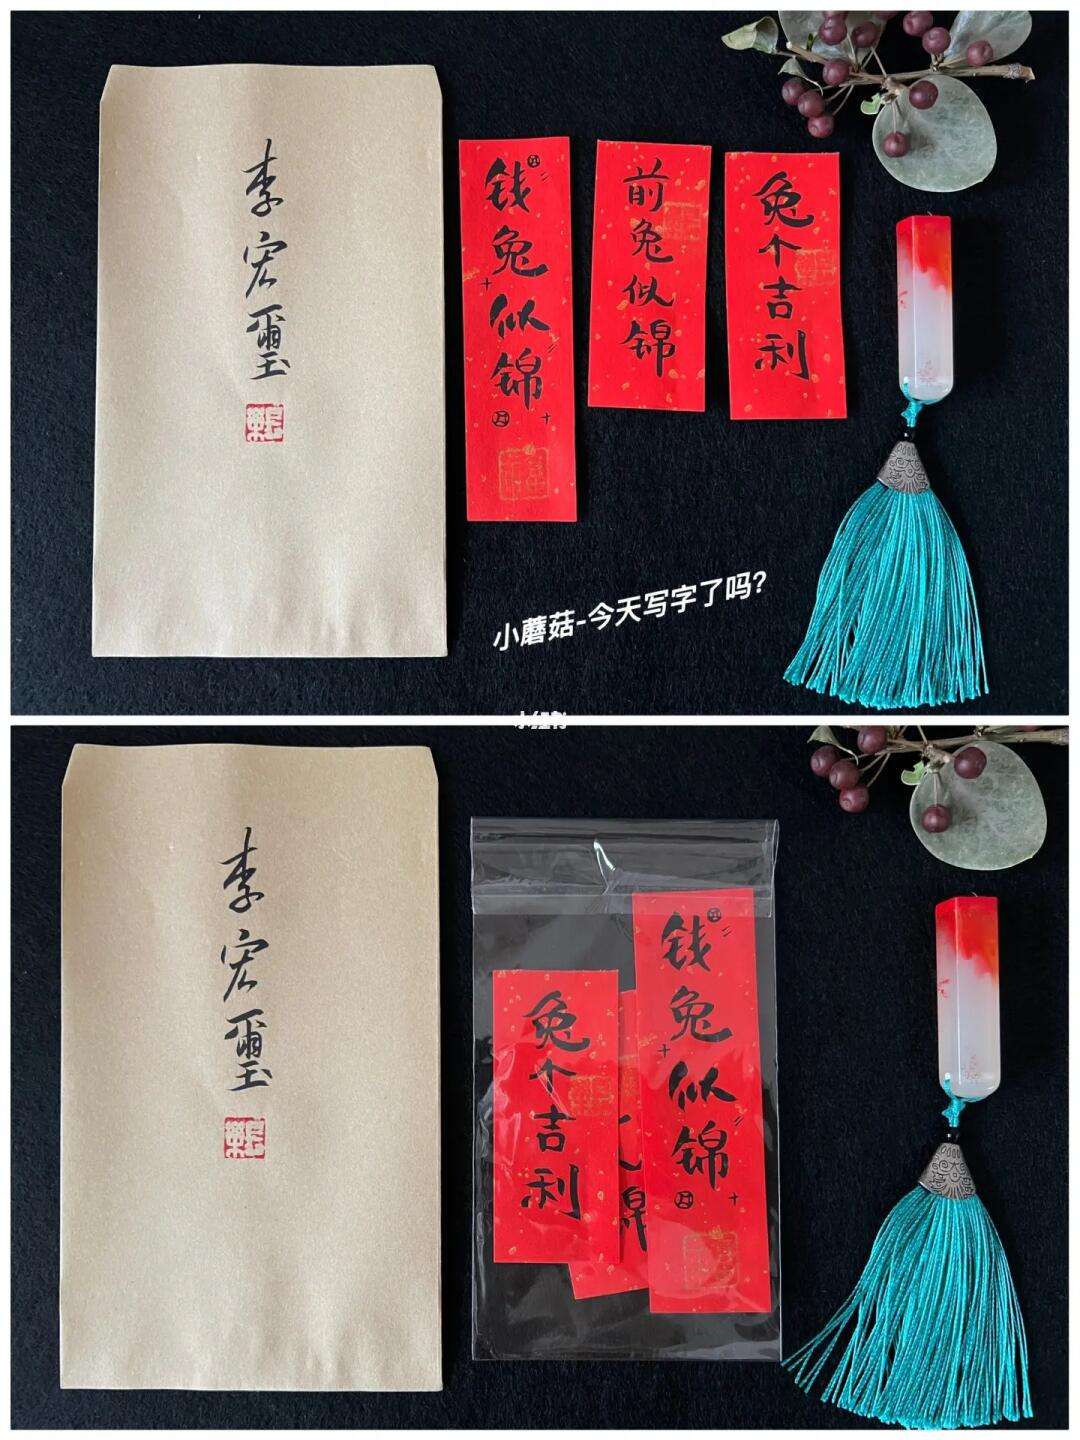 李宏璽
钱兔似锦
前兔似锦
兔个吉利
小蘑菇-今天写字了吗?
小红书
李宏璽
兔个吉利
锦
钱兔似锦